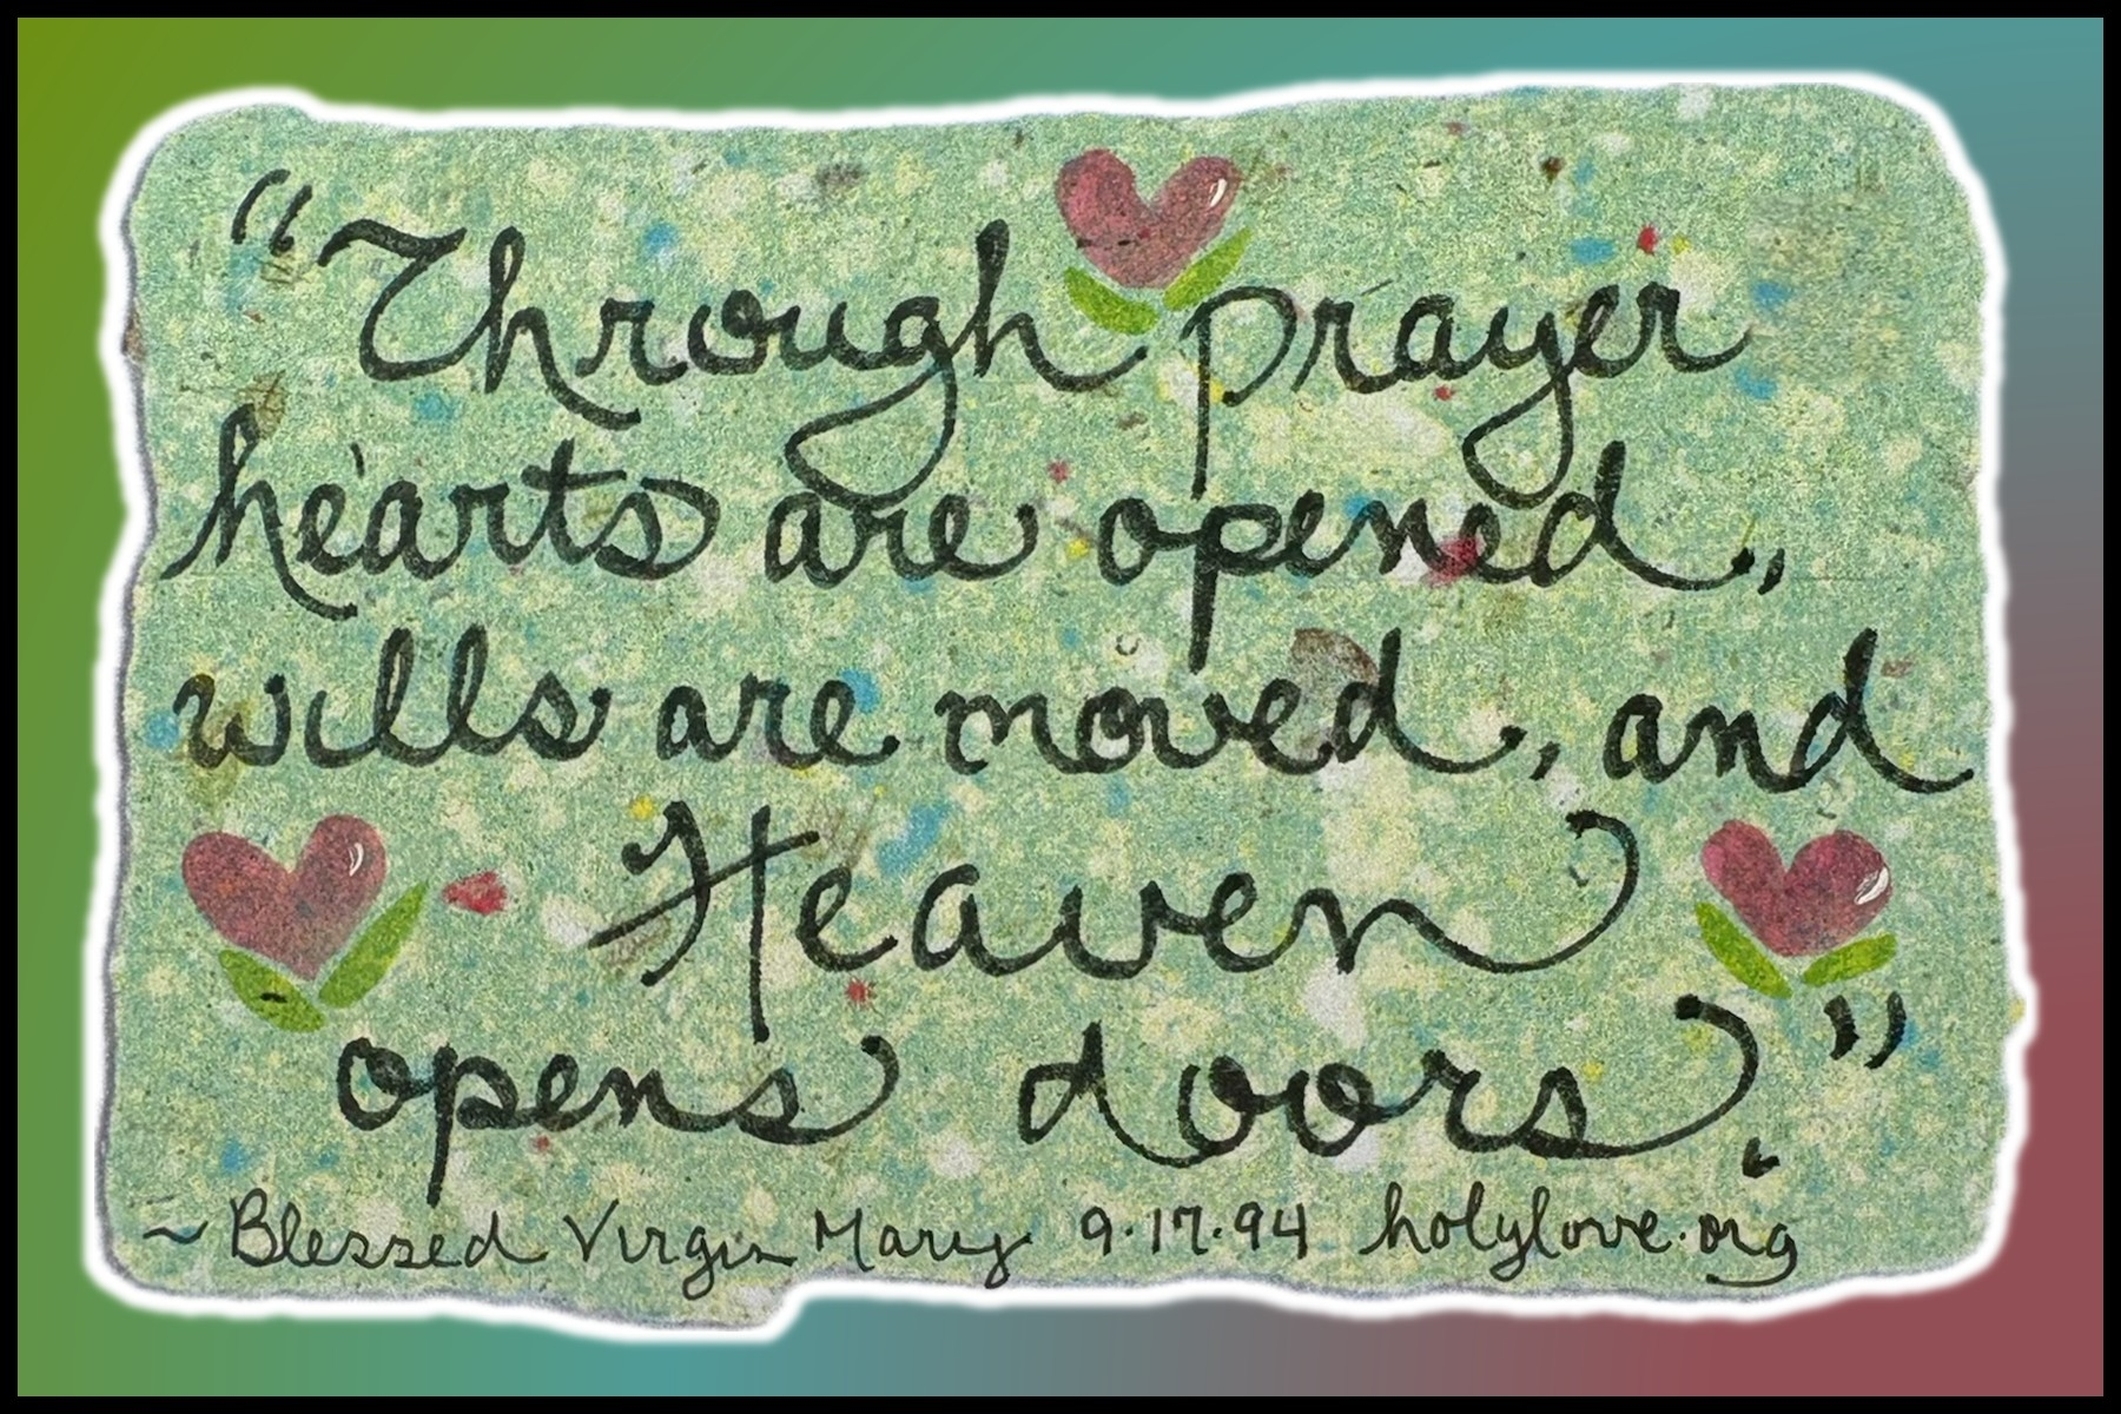 “Through prayer
hearts are opened,
wills are moved, and
Heaven
opens doors.”
~ Blessed Virgin Mary 9.17.94 holylove.org